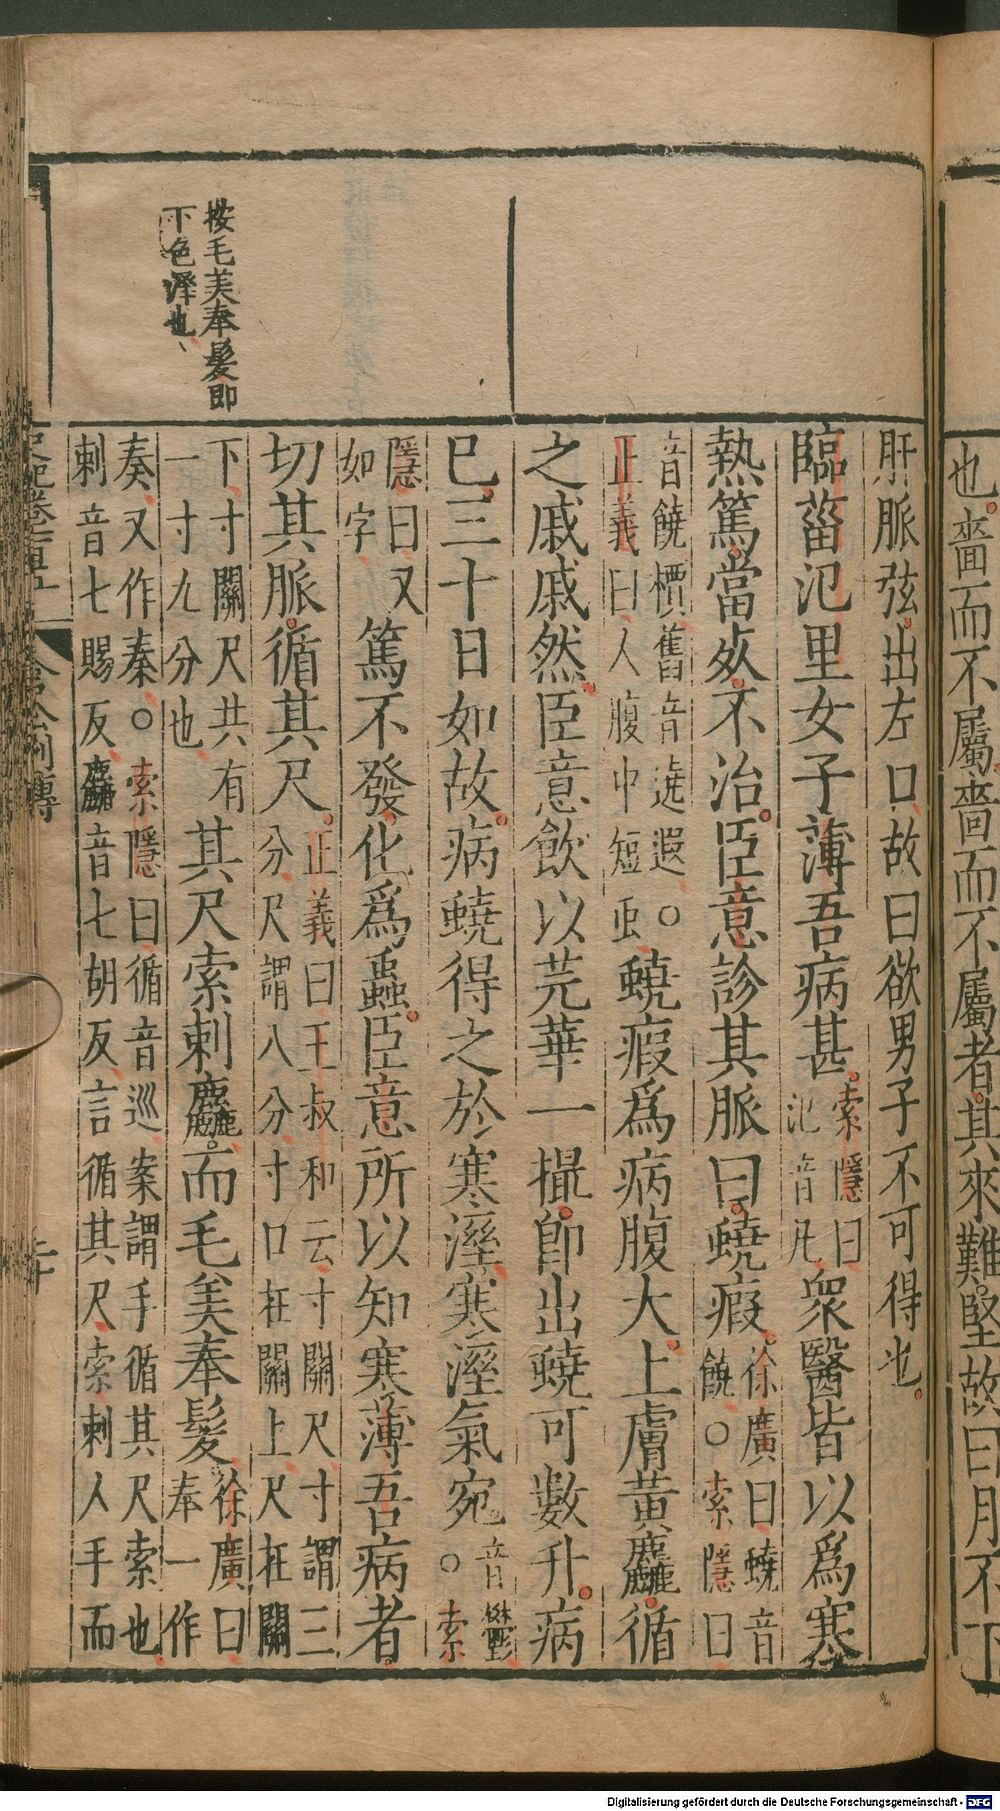 也嗇而不屬嗇而不屬者其來難堅故曰月不下
肝脈弦出左口故曰欲男子不可得也
臨菑氾里女子薄吾病甚索隱曰氾音凡眾醫皆以爲寒
熱篤當死不治臣意診其脈曰蟯瘕徐廣曰蟯音饒○索隱曰
音饒檟舊音遶遐○正義曰人腹中短虫蟯瘕爲病腹大上膚黃麤循
之戚戚然臣意飲以芫華一撮即出蟯可數升病
已三十日如故病蟯得之於寒溼寒溼氣宛音鬱○索
隱曰又如字篤不發化爲蟲臣意所以知寒薄吾病者
切其脈循其尺正義曰王叔和云寸關尺寸謂三分尺謂八分寸口在關上尺在關
下寸關尺共有一寸九分也其尺索刺麤而毛美奉髮徐廣曰奉一作
奏又作秦○索隱曰循音巡案謂手循其尺索也刺音七賜反麤音七胡反言循其尺索刺人手而
按毛美奉髮即
下色澤也
史記卷一百五 倉公列傳 二十
Digitalisierung gefördert durch die Deutsche Forschungsgemeinschaft - DFG